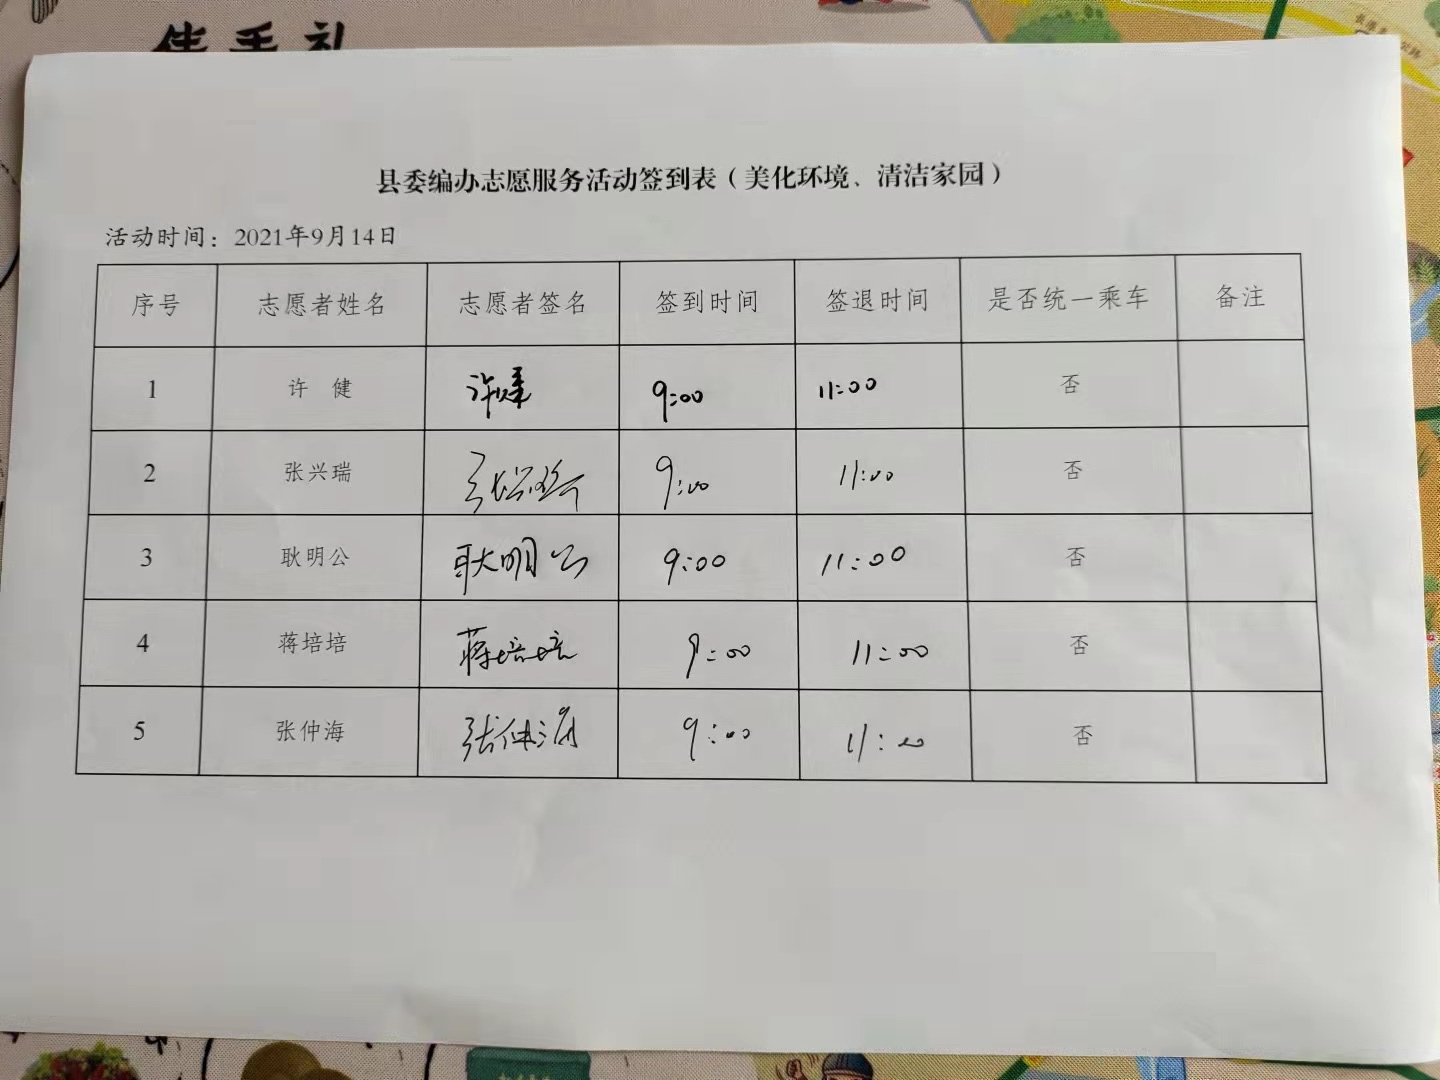 伴手礼
县委编办志愿服务活动签到表（美化环境、清洁家园）
活动时间：2021年9月14日
序号 志愿者姓名 志愿者签名 签到时间 签退时间 是否统一乘车 备注
1 许 健 许健 9:00 11:00 否
2 张兴瑞 张兴瑞 9:00 11:00 否
3 耿明公 耿明公 9:00 11:00 否
4 蒋培培 蒋培培 9:00 11:00 否
5 张仲海 张仲海 9:00 11:00 否